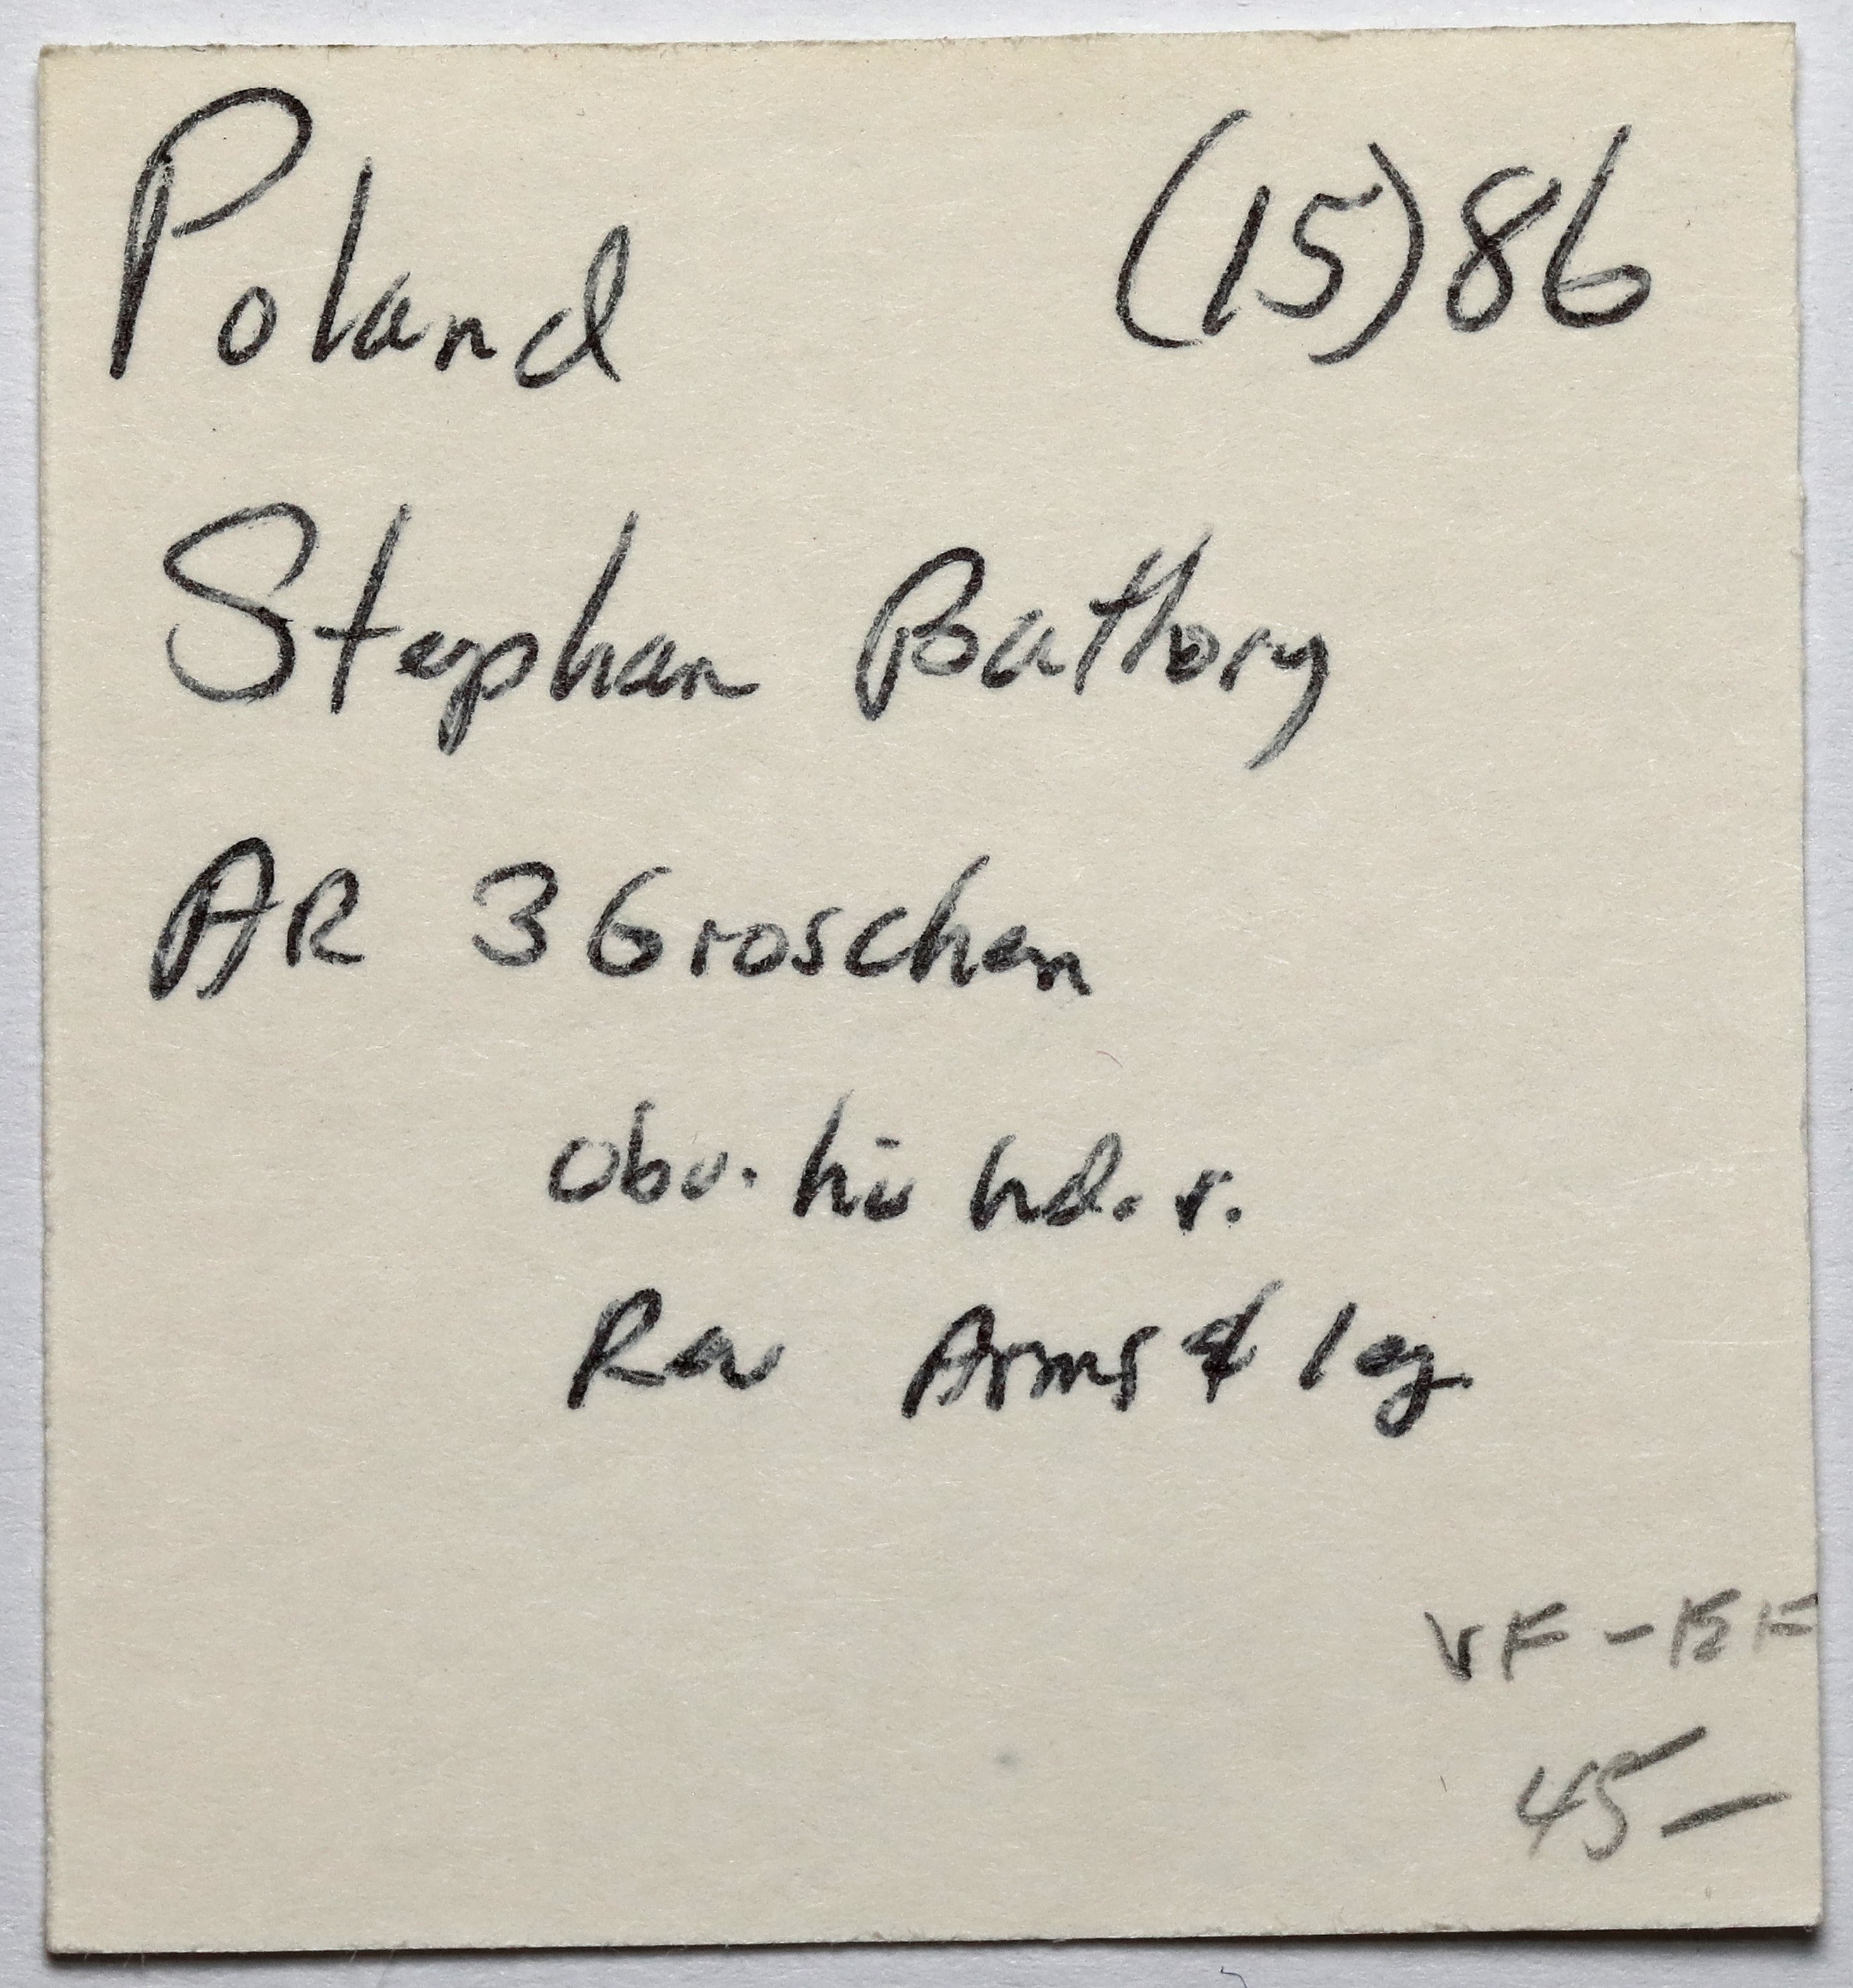 Poland (15)86
Stephan Bathory
AR 3 Groschen
Obv. his hd. r.
Rev Arms & leg.
VF - EF
45-